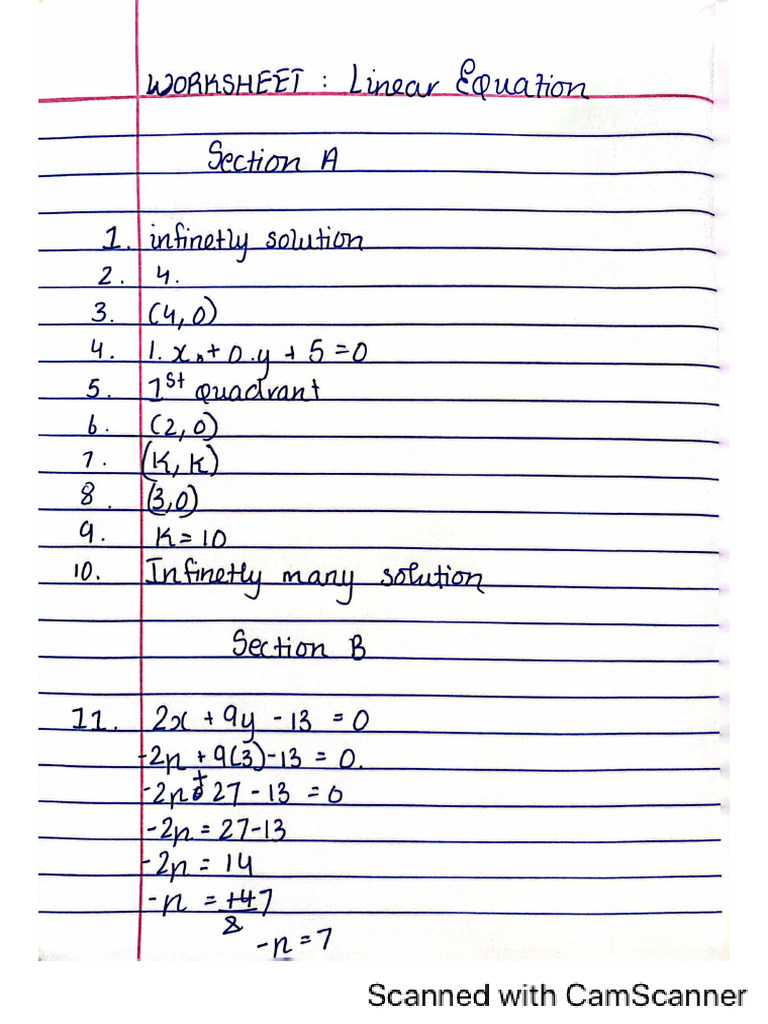 WORKSHEET : Linear Equation
Section A
1. infinetly solution
2. 4.
3. (4,0)
4. 1.x + 0.y + 5 = 0
5. 1st quadrant
6. (2,0)
7. (K, K)
8. (3,0)
9. K = 10
10. Infinetly many solution
Section B
11. 2x + 9y - 13 = 0
-2n + 9(3) - 13 = 0.
-2n + 27 - 13 = 0
-2n = 27-13
-2n = 14
-n = 7
-n = 7
Scanned with CamScanner